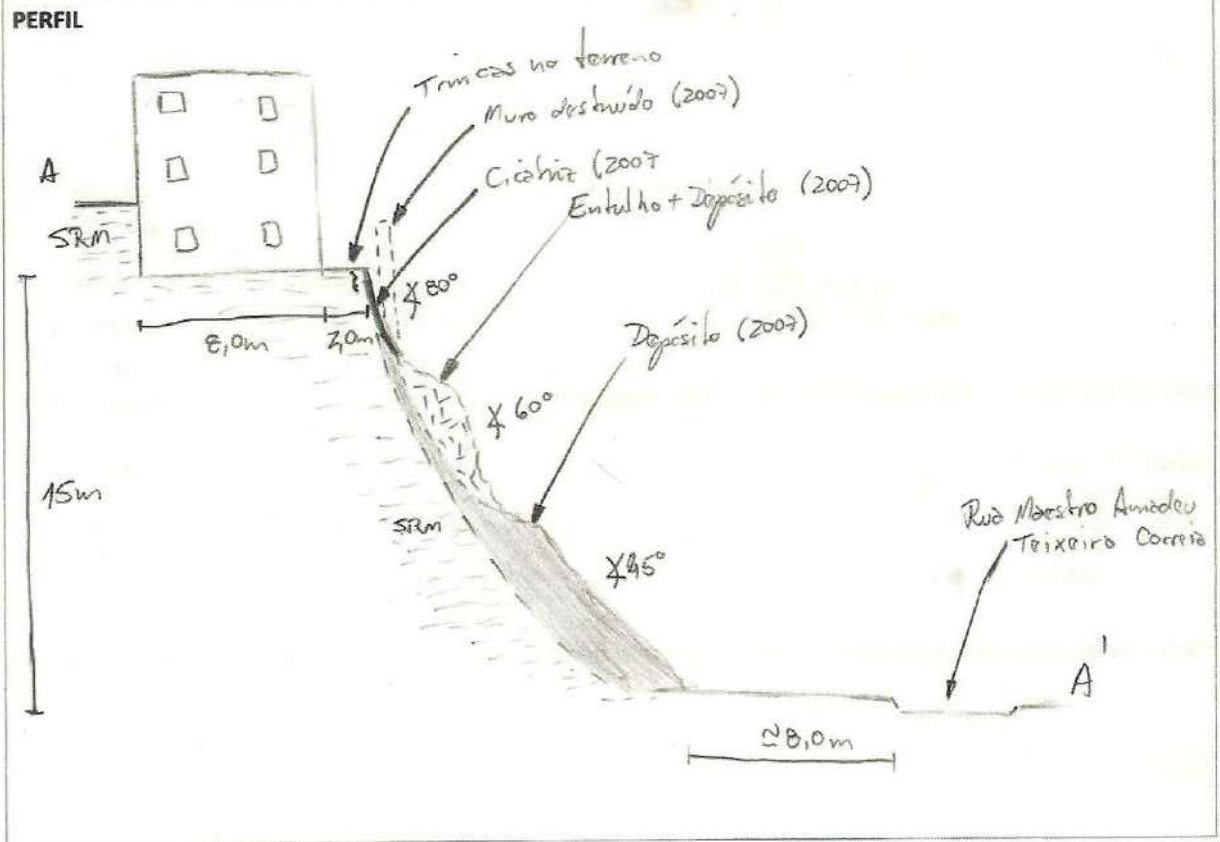 PERFIL
Trincas no terreno
Muro destruído (2007)
Cicatriz (2007
Entulho + Depósito (2007)
A
SRM
∡ 80°
8,0m
2,0m
Depósito (2007)
∡ 60°
15m
SRM
Rua Maestro Amadeu
Teixeira Correia
∡45°
A'
≃8,0m